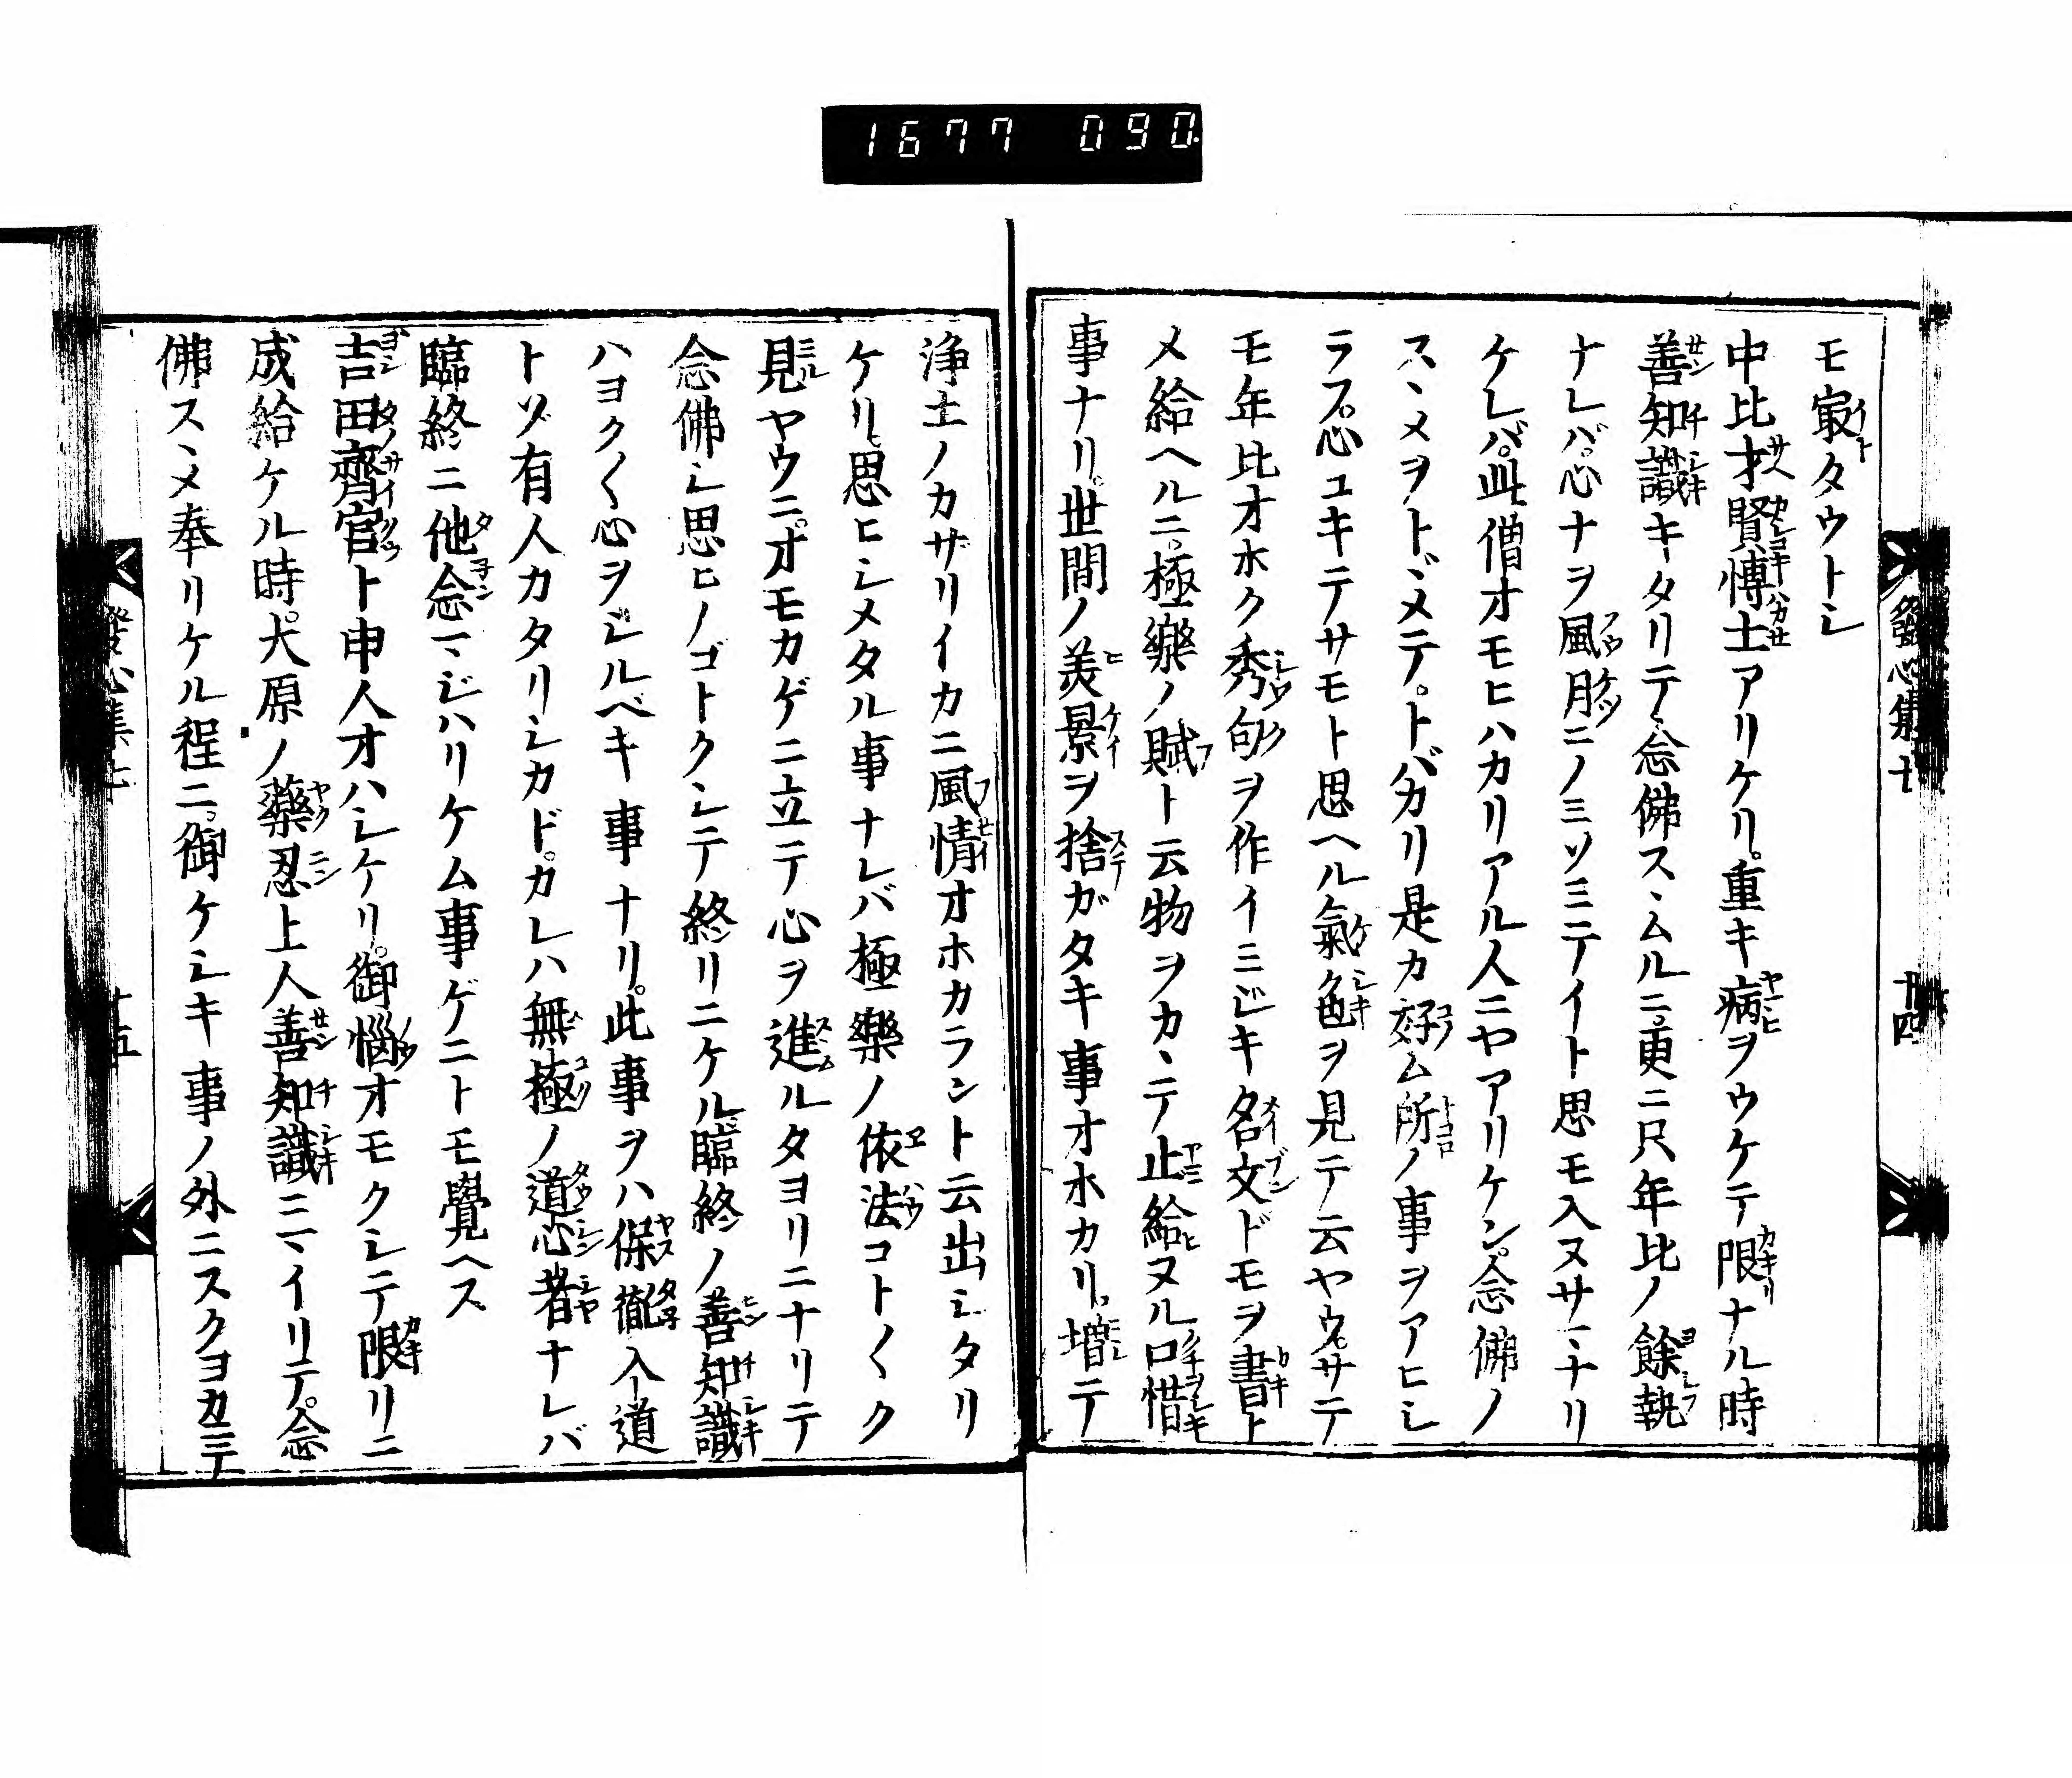 1677 090
發心集七
廿四
モ㝡タウトシ
中比才賢博士アリケリ。重キ病ヲウケテ限ナル時
善知識キタリテ念佛スヽムルニ。更ニ尺年比ノ餘執
ナレバ。心ナヲ風月ニノミソミテイト思モ入ヌサマナリ
ケレバ。此僧オモヒハカリアル人ニヤアリケン。念佛ノ
スヽメヲトヾメテ。トバカリ是カ好ム所ノ事ヲアヒシ
ラフ。心ユキテサモト思ヘル氣色ヲ見テ云ヤウ。サテ
モ年比オホク秀句ヲ作イミジキ名文ドモヲ書ト
メ給ヘルニ。極樂ノ賦ト云物ヲカヽテ止給ヌル口惜
事ナリ。世間ノ美景ヲ捨ガタキ事オホカリ。増テ
浄土ノカザリイカニ風情オホカラント云出シタリ
ケリ。思ヒシメタル事ナレバ極樂ノ依法コト〱ク
見ヤウニ。オモカゲニ立テ心ヲ進ルタヨリニナリテ
念佛シ思ヒノゴトクシテ終リニケル臨終ノ善知識
ハヨク〱心ヲシルベキ事ナリ。此事ヲハ保徹入道
トゾ有人カタリシカド。カレハ無極ノ道心者ナレバ
臨終ニ他念マジハリケム事ゲニトモ覺ヘス
吉田齊宮ト申人オハシケリ。御惱オモクシテ限リニ
成給ケル時。大原ノ藥忍上人善知識ニマイリテ。念
佛スヽメ奉リケル程ニ。御ケシキ事ノ外ニスクヨカニテ
發心集七
廿五